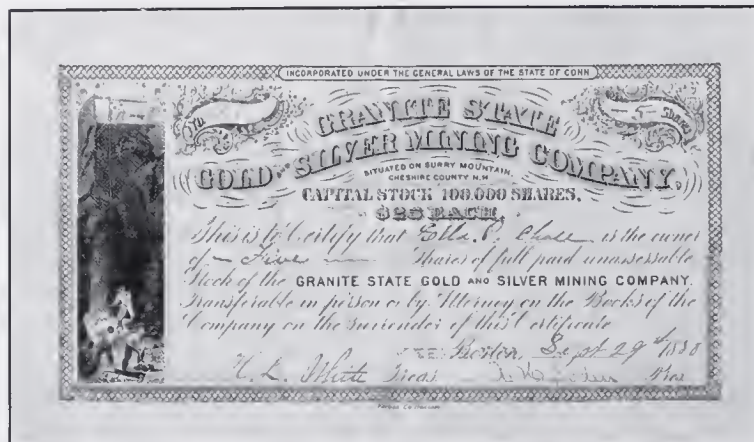 INCORPORATED UNDER THE GENERAL LAWS OF THE STATE OF CONN
No. 5 Shares
GRANITE STATE
GOLD AND SILVER MINING COMPANY,
SITUATED ON SURRY MOUNTAIN,
CHESHIRE COUNTY N.H.
CAPITAL STOCK 100.000 SHARES,
$25 EACH.
This is to Certify that Ella P. Chase is the owner
of Five Shares of full paid unassessable
Stock of the GRANITE STATE GOLD AND SILVER MINING COMPANY.
Transferable in person or by Attorney on the Books of the
Company on the surrender of this Certificate
Boston, Sept 29th 1880
H. L. White Treas. Pres